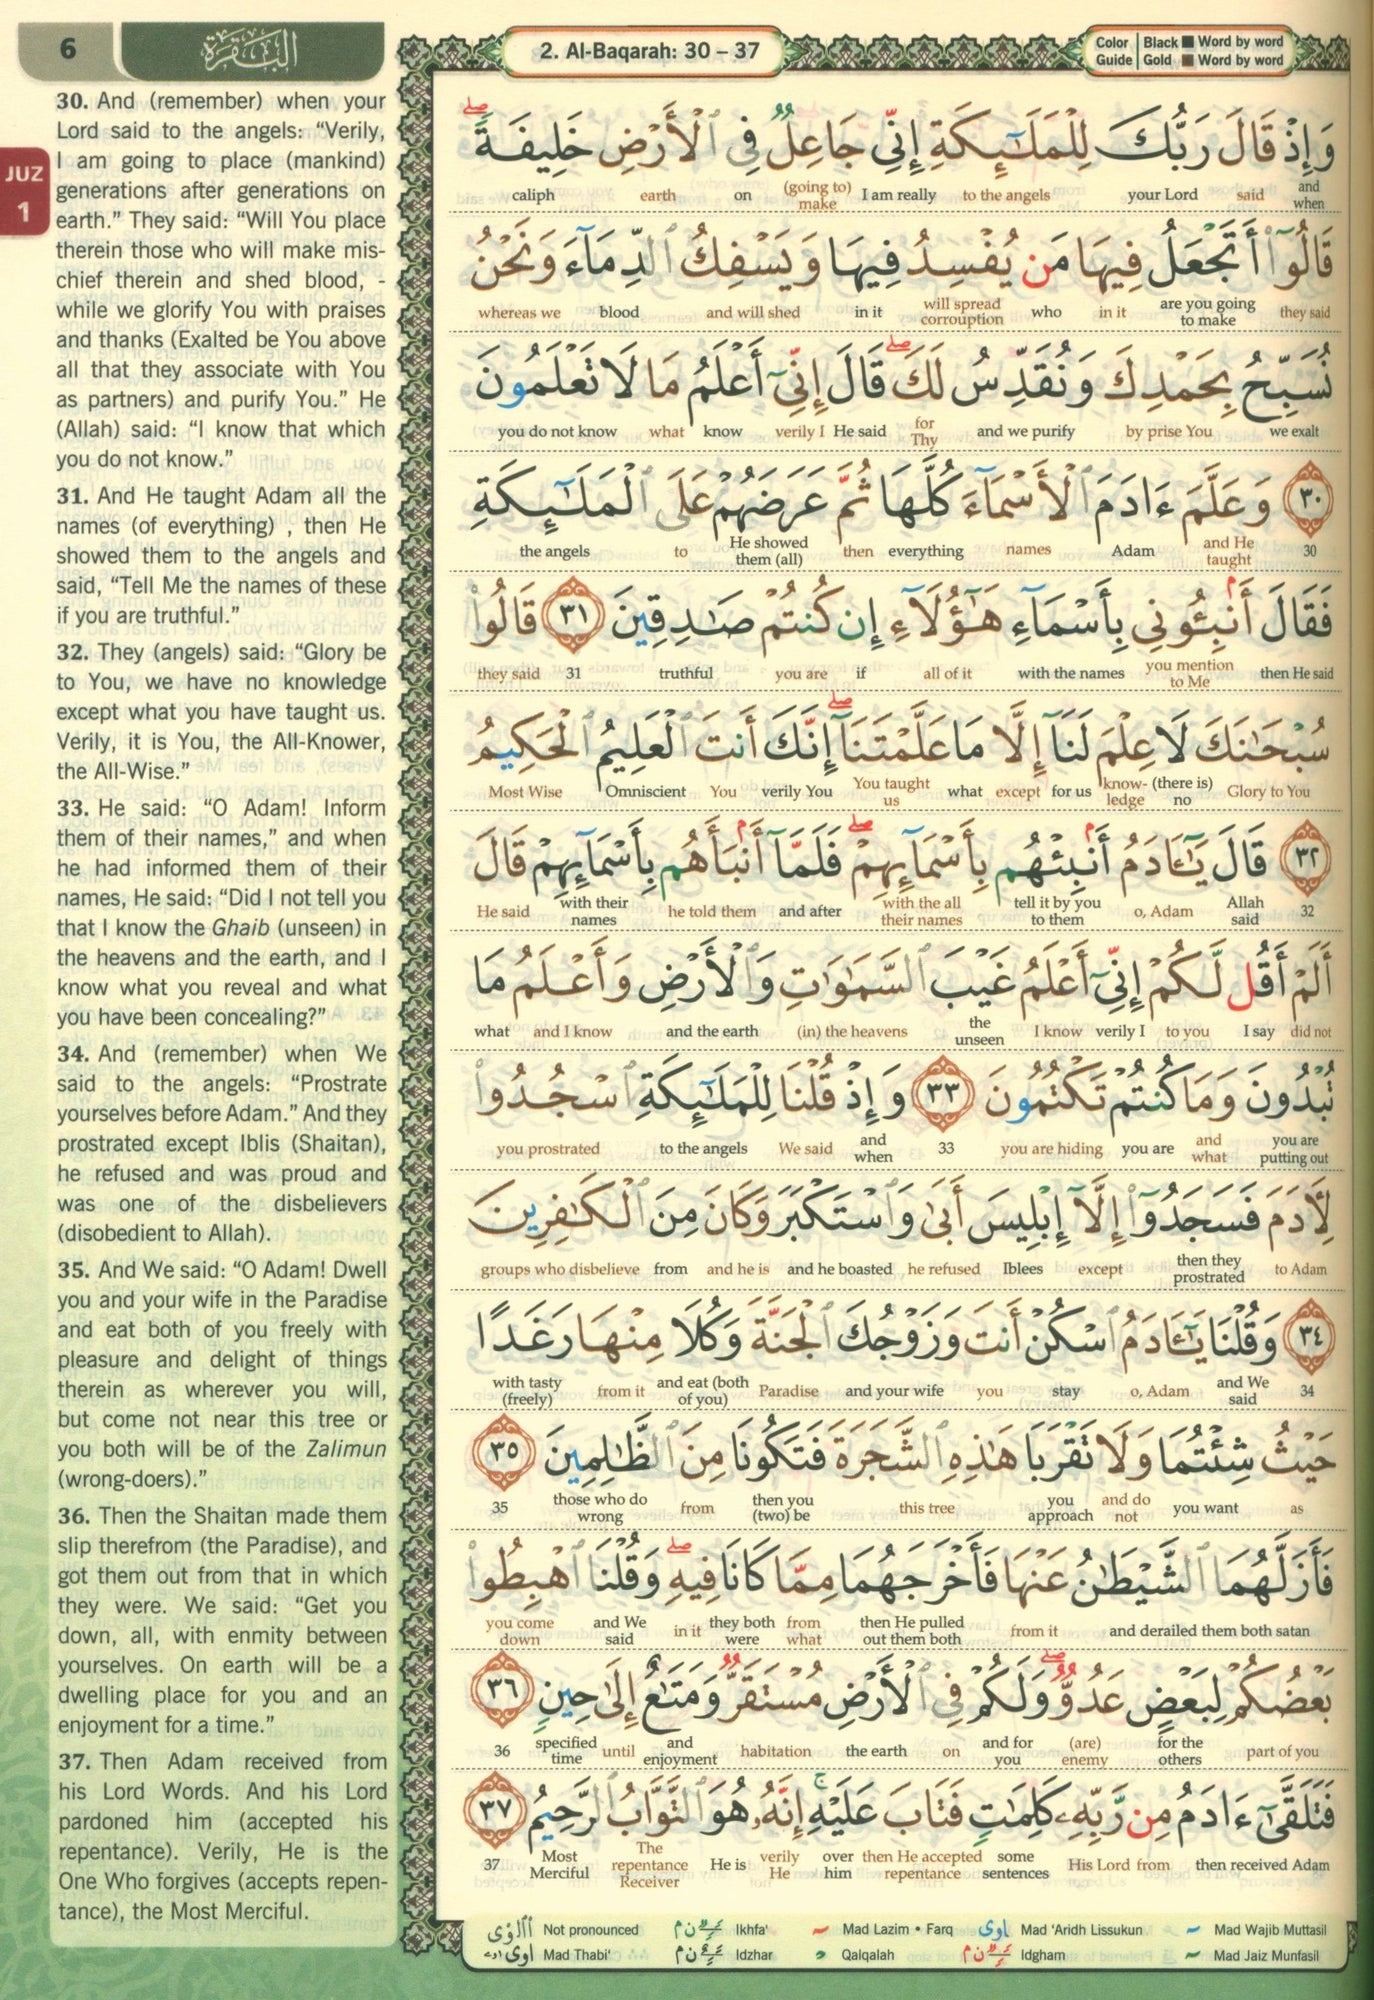 6
البقرة
2. Al-Baqarah: 30 – 37
Color Guide
Black ■ Word by word
Gold ■ Word by word
JUZ
1
30. And (remember) when your
Lord said to the angels: “Verily,
I am going to place (mankind)
generations after generations on
earth.” They said: “Will You place
therein those who will make mis-
chief therein and shed blood, -
while we glorify You with praises
and thanks (Exalted be You above
all that they associate with You
as partners) and purify You.” He
(Allah) said: “I know that which
you do not know.”
31. And He taught Adam all the
names (of everything) , then He
showed them to the angels and
said, “Tell Me the names of these
if you are truthful.”
32. They (angels) said: “Glory be
to You, we have no knowledge
except what you have taught us.
Verily, it is You, the All-Knower,
the All-Wise.”
33. He said: “O Adam! Inform
them of their names,” and when
he had informed them of their
names, He said: “Did I not tell you
that I know the Ghaib (unseen) in
the heavens and the earth, and I
know what you reveal and what
you have been concealing?”
34. And (remember) when We
said to the angels: “Prostrate
yourselves before Adam.” And they
prostrated except Iblis (Shaitan),
he refused and was proud and
was one of the disbelievers
(disobedient to Allah).
35. And We said: “O Adam! Dwell
you and your wife in the Paradise
and eat both of you freely with
pleasure and delight of things
therein as wherever you will,
but come not near this tree or
you both will be of the Zalimun
(wrong-doers).”
36. Then the Shaitan made them
slip therefrom (the Paradise), and
got them out from that in which
they were. We said: “Get you
down, all, with enmity between
yourselves. On earth will be a
dwelling place for you and an
enjoyment for a time.”
37. Then Adam received from
his Lord Words. And his Lord
pardoned him (accepted his
repentance). Verily, He is the
One Who forgives (accepts repen-
tance), the Most Merciful.
وَإِذْ قَالَ رَبُّكَ لِلْمَلَٰٓئِكَةِ إِنِّى جَاعِلٌ فِى ٱلْأَرْضِ خَلِيفَةً ۖ
caliph earth on (going to) make I am really to the angels your Lord said and when
قَالُوٓا۟ أَتَجْعَلُ فِيهَا مَن يُفْسِدُ فِيهَا وَيَسْفِكُ ٱلدِّمَآءَ وَنَحْنُ
whereas we blood and will shed in it will spread corrouption who in it are you going to make they said
نُسَبِّحُ بِحَمْدِكَ وَنُقَدِّسُ لَكَ ۖ قَالَ إِنِّىٓ أَعْلَمُ مَا لَا تَعْلَمُونَ
you do not know what know verily I He said for Thy and we purify by prise You we exalt
٣٠ وَعَلَّمَ ءَادَمَ ٱلْأَسْمَآءَ كُلَّهَا ثُمَّ عَرَضَهُمْ عَلَى ٱلْمَلَٰٓئِكَةِ
the angels to He showed them (all) then everything names Adam and He taught 30
فَقَالَ أَنۢبِـُٔونِى بِأَسْمَآءِ هَٰٓؤُلَآءِ إِن كُنتُمْ صَٰدِقِينَ ٣١ قَالُوا۟
they said 31 truthful you are if all of it with the names you mention to Me then He said
سُبْحَٰنَكَ لَا عِلْمَ لَنَآ إِلَّا مَا عَلَّمْتَنَآ ۖ إِنَّكَ أَنتَ ٱلْعَلِيمُ ٱلْحَكِيمُ
Most Wise Omniscient You verily You You taught us what except for us know-ledge (there is) no Glory to You
٣٢ قَالَ يَٰٓـَٔادَمُ أَنۢبِئْهُم بِأَسْمَآئِهِمْ ۖ فَلَمَّآ أَنۢبَأَهُم بِأَسْمَآئِهِمْ قَالَ
He said with their names he told them and after with the all their names tell it by you to them o, Adam Allah said 32
أَلَمْ أَقُل لَّكُمْ إِنِّىٓ أَعْلَمُ غَيْبَ ٱلسَّمَٰوَٰتِ وَٱلْأَرْضِ وَأَعْلَمُ مَا
what and I know and the earth (in) the heavens the unseen I know verily I to you I say did not
تُبْدُونَ وَمَا كُنتُمْ تَكْتُمُونَ ٣٣ وَإِذْ قُلْنَا لِلْمَلَٰٓئِكَةِ ٱسْجُدُوا۟
you prostrated to the angels We said and when 33 you are hiding you are and what you are putting out
لِـَٔادَمَ فَسَجَدُوٓا۟ إِلَّآ إِبْلِيسَ أَبَىٰ وَٱسْتَكْبَرَ وَكَانَ مِنَ ٱلْكَٰفِرِينَ
groups who disbelieve from and he is and he boasted he refused Iblees except then they prostrated to Adam
٣٤ وَقُلْنَا يَٰٓـَٔادَمُ ٱسْكُنْ أَنتَ وَزَوْجُكَ ٱلْجَنَّةَ وَكُلَا مِنْهَا رَغَدًا
with tasty (freely) from it and eat (both of you) Paradise and your wife you stay o, Adam and We said 34
حَيْثُ شِئْتُمَا وَلَا تَقْرَبَا هَٰذِهِ ٱلشَّجَرَةَ فَتَكُونَا مِنَ ٱلظَّٰلِمِينَ ٣٥
35 those who do wrong from then you (two) be this tree you approach and do not you want as
فَأَزَلَّهُمَا ٱلشَّيْطَٰنُ عَنْهَا فَأَخْرَجَهُمَا مِمَّا كَانَا فِيهِ ۖ وَقُلْنَا ٱهْبِطُوا۟
you come down and We said in it they both were from what then He pulled out them both from it and derailed them both satan
بَعْضُكُمْ لِبَعْضٍ عَدُوٌّ ۖ وَلَكُمْ فِى ٱلْأَرْضِ مُسْتَقَرٌّ وَمَتَٰعٌ إِلَىٰ حِينٍ ٣٦
36 specified time until and enjoyment habitation the earth on and for you (are) enemy for the others part of you
فَتَلَقَّىٰٓ ءَادَمُ مِن رَّبِّهِۦ كَلِمَٰتٍ فَتَابَ عَلَيْهِ ۚ إِنَّهُۥ هُوَ ٱلتَّوَّابُ ٱلرَّحِيمُ ٣٧
37 Most Merciful The repentance Receiver He is verily He over him then He accepted repentance some sentences His Lord from then received Adam
Not pronounced Ikhfa' Mad Lazim • Farq Mad 'Aridh Lissukun Mad Wajib Muttasil
Mad Thabi' Idzhar Qalqalah Idgham Mad Jaiz Munfasil